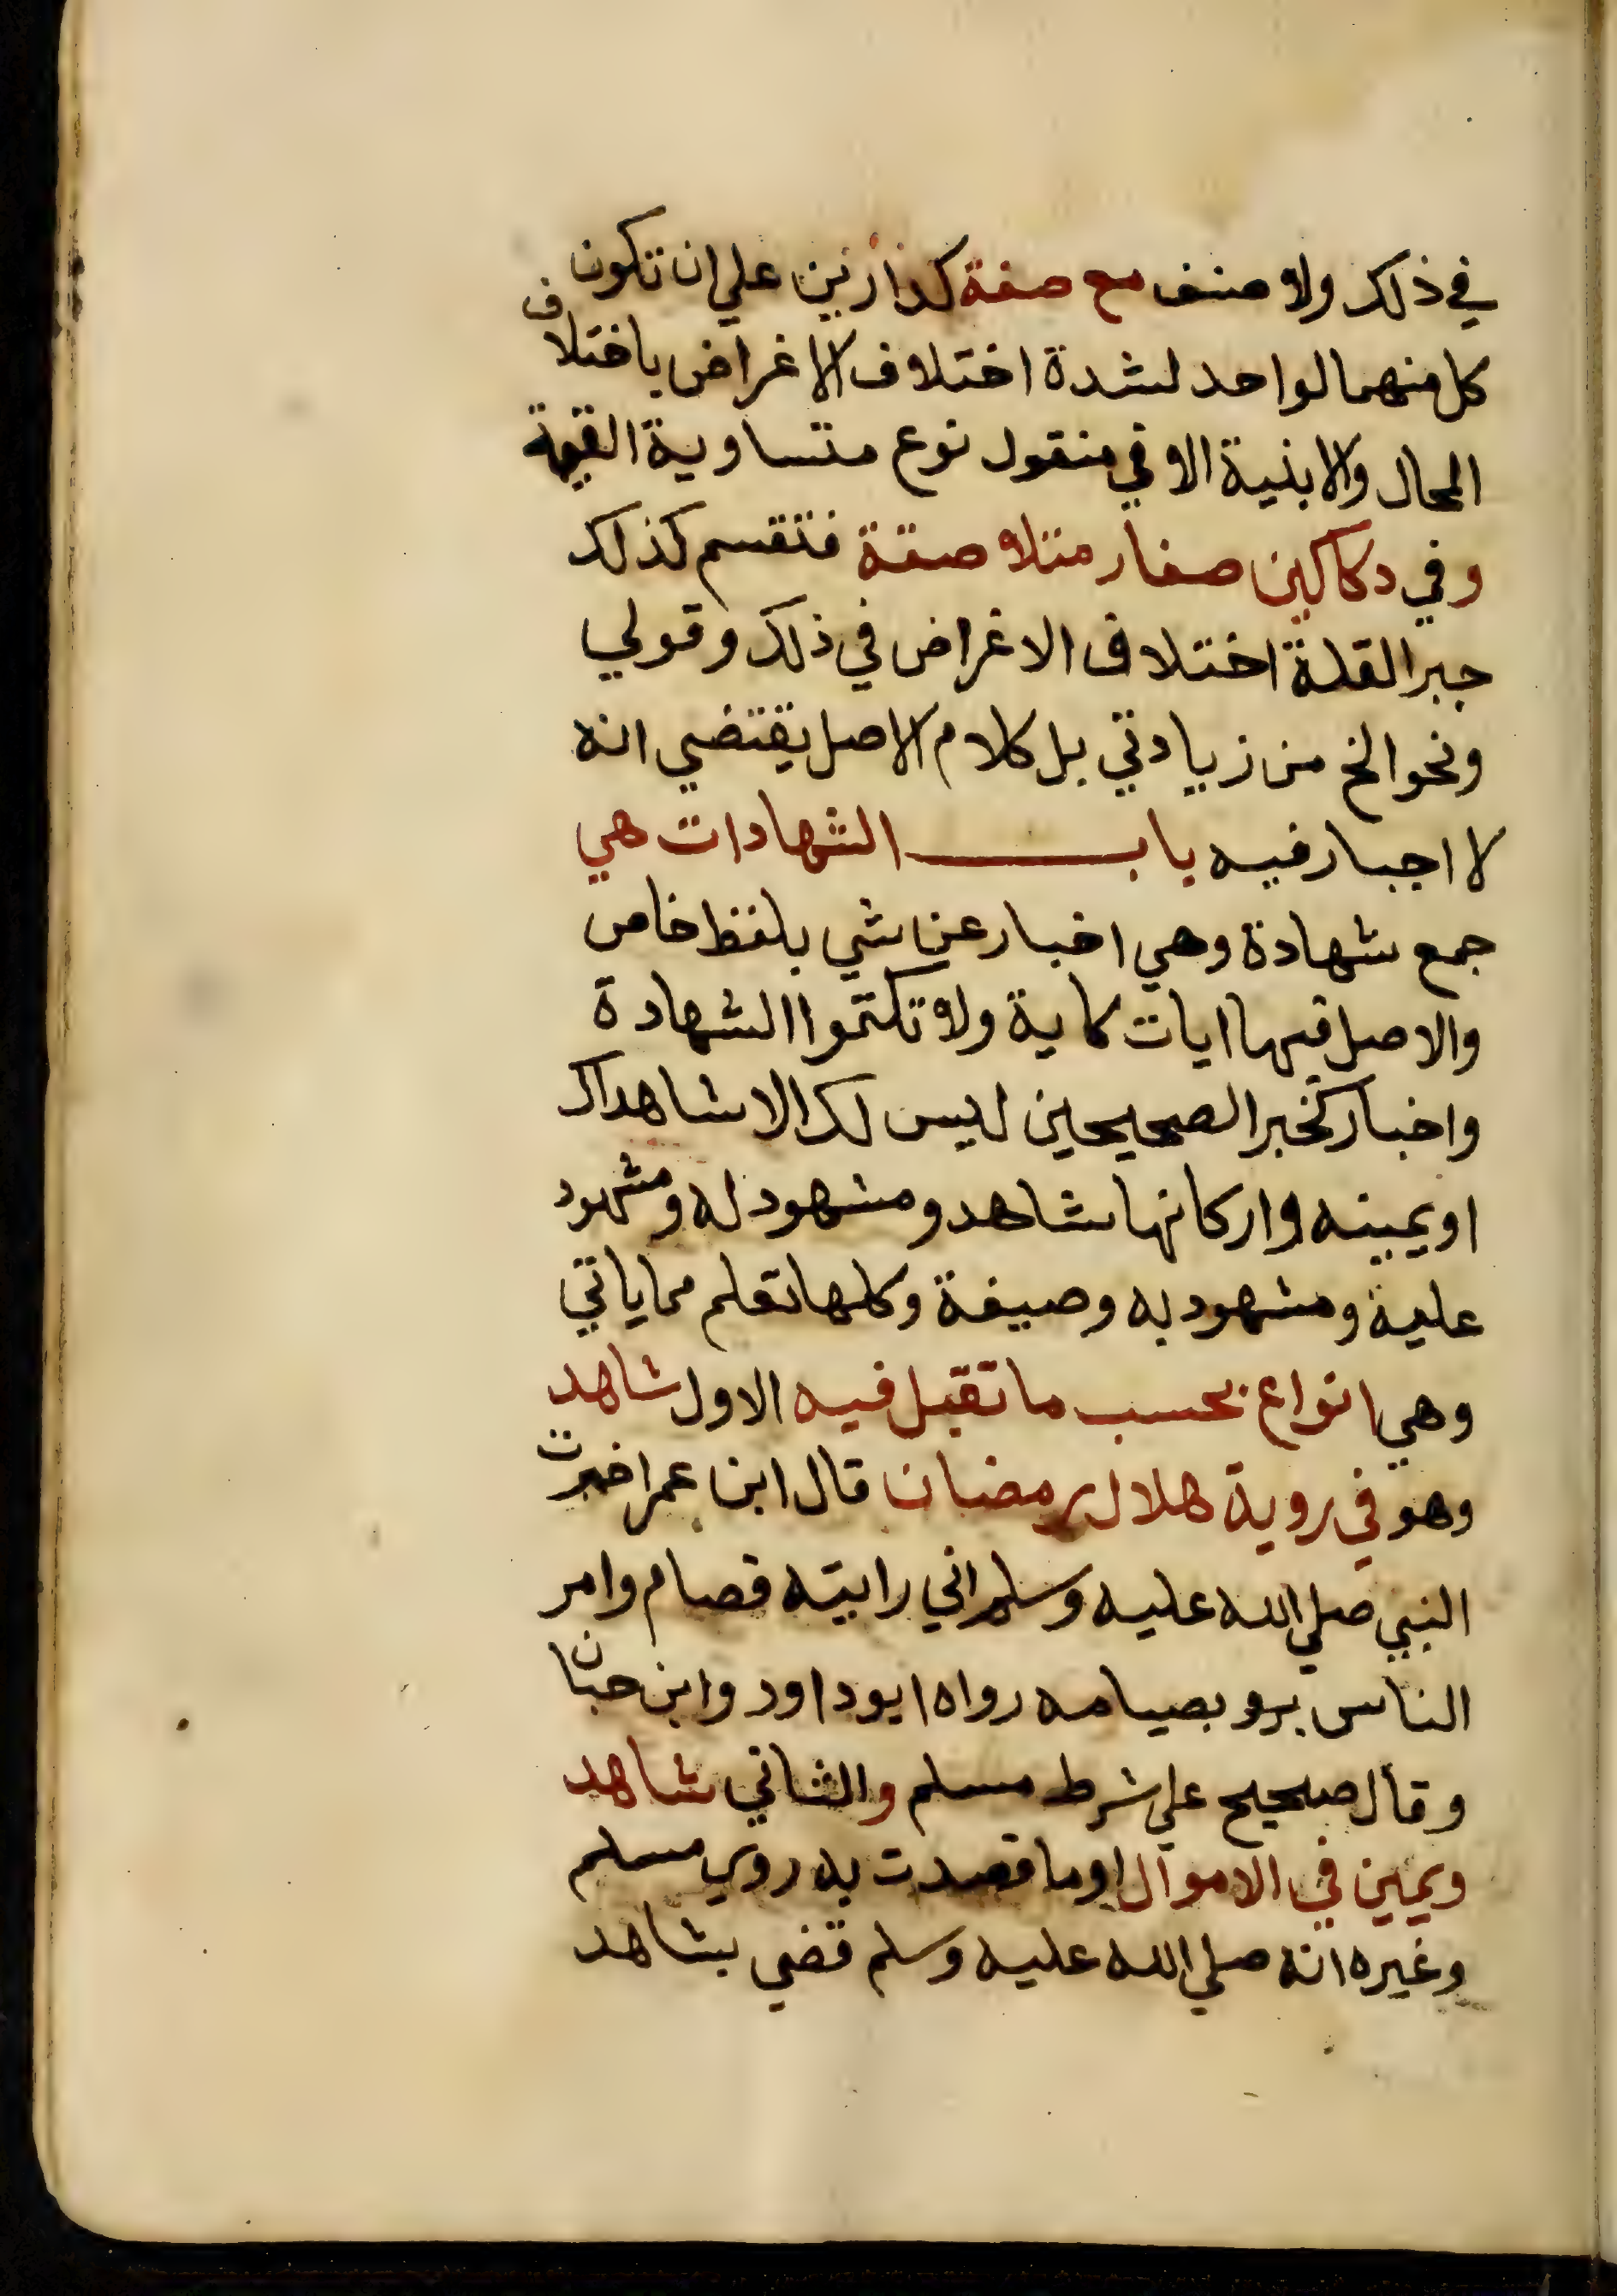 في ذلك ولا صنف مع صفة كدارين علي ان تكون
كل منهما لواحد لشدة اختلاف الاغراض باختلاف
المحال والابنية الا في منقول نوع متساوية القيمة
وفي دكاكين صغار متلاصقة فتقسم كذلك
جبرا لقلة اختلاف الاغراض في ذلك وقولي
ونحو الخ من زيادتي بل كلام الاصل يقتضي انه
لا اجبار فيه باب الشهادات هي
جمع شهادة وهي اخبار عن شي بلفظ خاص
والاصل فيها ايات كاية ولا تكتموا الشهادة
واخبار كخبر الصحيحين ليس لك الا شاهداك
او يمينه واركانها شاهد ومشهود له ومشهود
عليه ومشهود به وصيغة وكلها تعلم مما ياتي
وهي انواع بحسب ما تقبل فيه الاول شاهد
وهو في روية هلال رمضان قال ابن عمر اخبرت
النبي صلي الله عليه وسلم اني رايته فصام وامر
الناس بصيامه رواه ابو داود وابن حبان
وقال صحيح علي شرط مسلم والثاني شاهد
ويمين في الاموال او ما قصدت به روي مسلم
وغيره انه صلي الله عليه وسلم قضي بشاهد